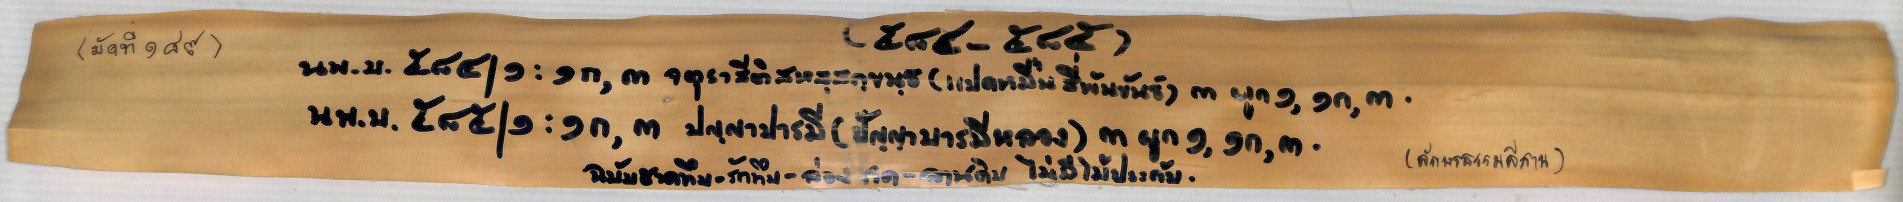 (มัดที่ ๑๘๙)
(๕๘๔ - ๕๘๕)
นพ.บ. ๕๘๔/๑ : ๑ก, ๓ จตุราสีติสหสฺสกฺขนฺธ (แปดหมื่นสี่พันขันธ์) ๓ ผูก ๑, ๑ก, ๓.
นพ.บ. ๕๘๕/๑ : ๑ก, ๓ ปญฺญาปารมี (ปัญญาบารมีหลวง) ๓ ผูก ๑, ๑ก, ๓.
ฉบับชาดทึบ-รักทึบ-ล่องชาด-ลานดิบ ไม่มีไม้ประกับ.
(อักษรธรรมอีสาน)